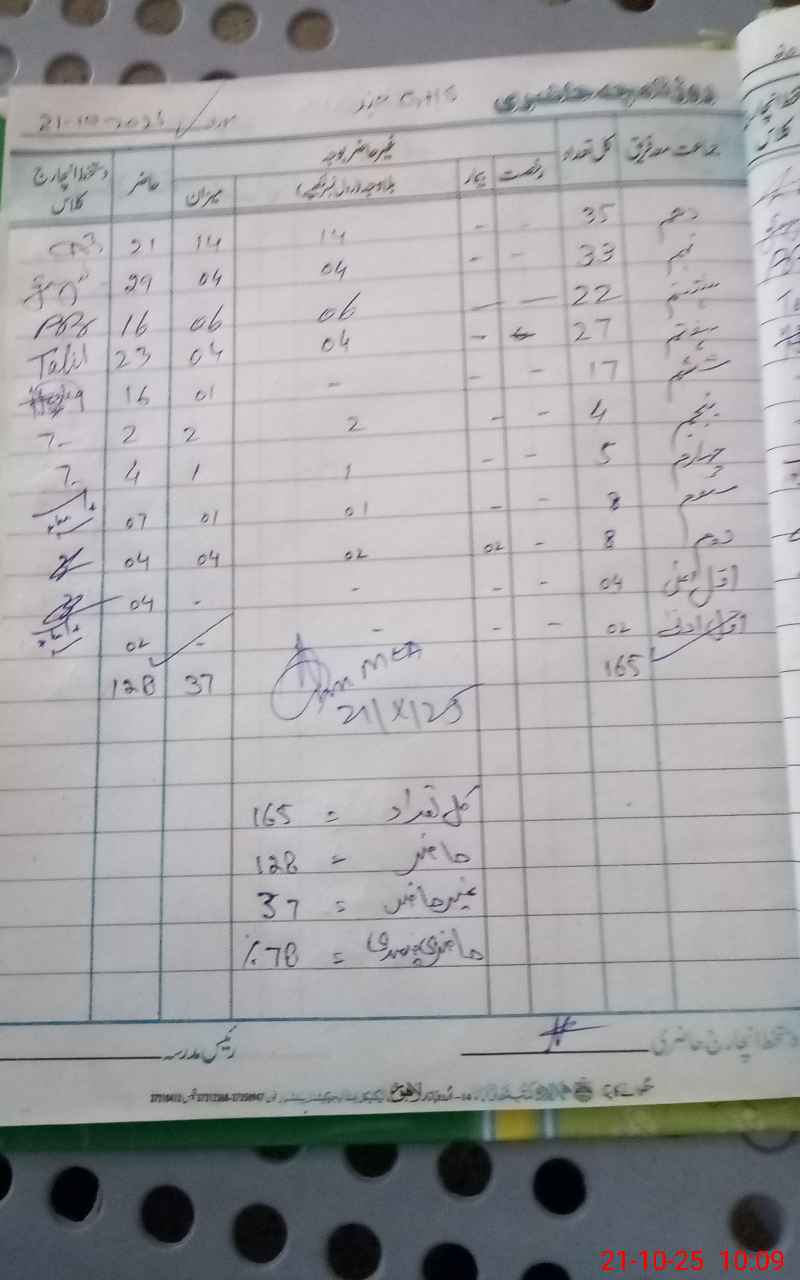 روزنامچہ حاضری GHS مورخہ 21-10-2025
جماعت معہ فریق کل تعداد غیر حاضر بوجہ حاضر دستخط انچارج کلاس
رخصت بیمار بلاوجہ میزان
دہم 35 - - 14 14 21
نہم 33 - - 04 04 29
ہشتم 22 - - 06 06 16
ہفتم 27 - - 04 04 23 Talil
ششم 17 - - - 01 16
پنجم 4 - - 2 2 2
چہارم 5 - - 1 1 4
سوم 8 - - 01 01 07
دوم 8 - 02 02 04 04
اول اعلیٰ 04 - - - - 04
اول ادنیٰ 02 - - - - 02
165 37 128
MEA
21/X/25
کل تعداد = 165
حاضر = 128
غیر حاضر = 37
حاضری فیصدی = 78٪
دستخط انچارج حاضری رئیس مدرسہ
21-10-25 10:09